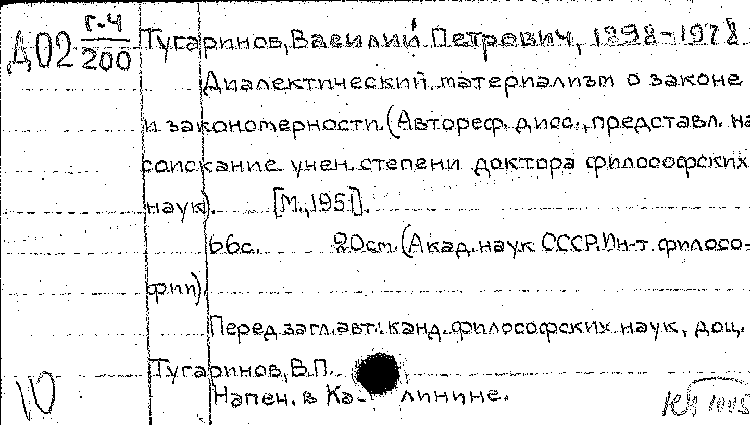 Д02 Г-4/200 Тугаринов, Василий Петрович, 1898-1978
Диалектический материализм о законе
и закономерности. (Автореф. дисс., представл. на
соискание учен. степени доктора философских
наук). [М., 1951].
66с. 20см. (Акад. наук СССР. Ин-т филосо-
фии).
Перед загл. авт.: канд. философских наук, доц.
Тугаринов, В.П.
Напеч. в Ка-линине.
10